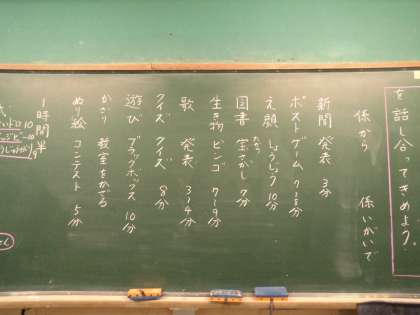 を話し合ってきめよう。
係から　係いがいで
新聞　発表　3分
ポスト　ゲーム　7～8分
え顔　しょうしょう　10分
図書　宝さがし　7分
生き物　ビンゴ　7～9分
歌　発表　3～4分
クイズ　クイズ　8分
遊び　ブラックボックス　10分
かざり　教室をかざる
ぬり絵　コンテスト　5分
1時間半